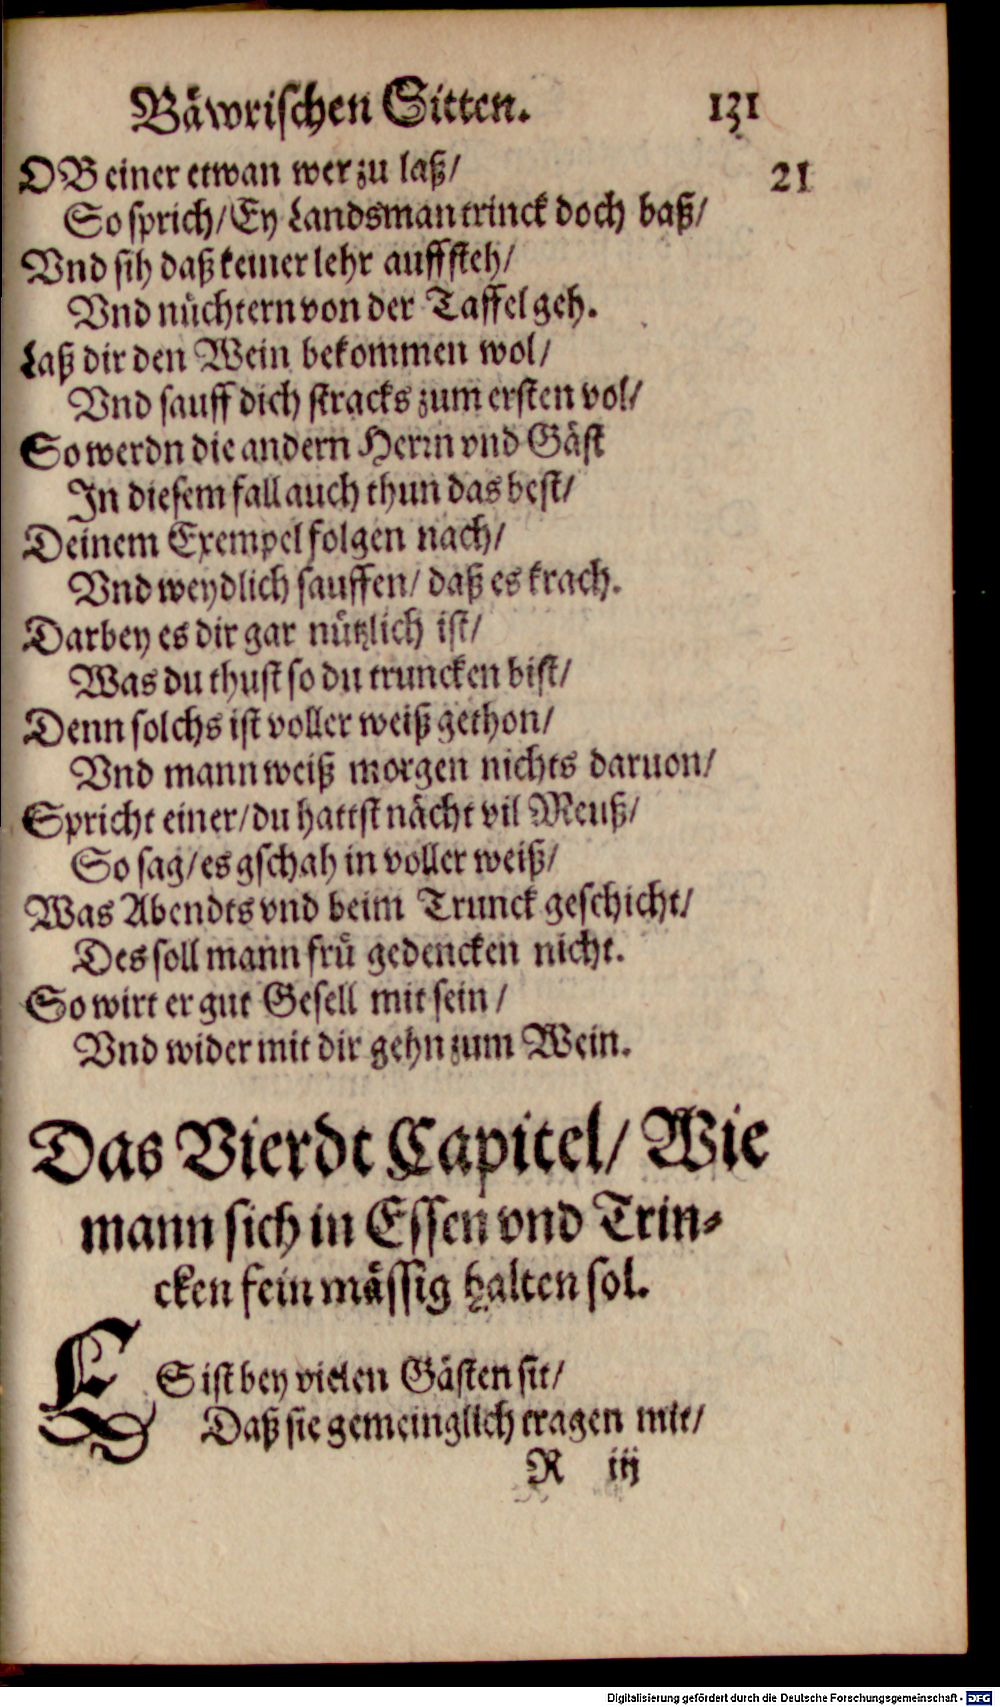 Bäwrischen Sitten. 131
OB einer etwan wer zu laß/ 21
So sprich/Ey Landsman trinck doch baß/
Vnd sih daß keiner lehr auffsteh/
Vnd nüchtern von der Taffel geh.
Laß dir den Wein bekommen wol/
Vnd sauff dich stracks zum ersten vol/
So werdn die andern Herrn vnd Gäst
In diesem fall auch thun das best/
Deinem Exempel folgen nach/
Vnd weydlich sauffen/ daß es krach.
Darbey es dir gar nützlich ist/
Was du thust so du truncken bist/
Denn solchs ist voller weiß gethon/
Vnd mann weiß morgen nichts daruon/
Spricht einer/du hattst nächt vil Meuß/
So sag/es gschah in voller weiß/
Was Abendts vnd beim Trunck geschicht/
Des soll mann frü gedencken nicht.
So wirt er gut Gesell mit sein/
Vnd wider mit dir gehn zum Wein.
Das Vierdt Capitel/ Wie
mann sich in Essen vnd Trin-
cken fein mässig halten sol.
ES ist bey vielen Gästen sit/
Daß sie gemeinglich tragen mit/
R iij
Digitalisierung gefördert durch die Deutsche Forschungsgemeinschaft - DFG